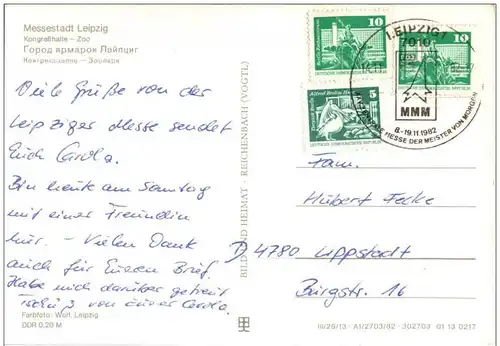 Messestadt Leipzig
Kongreßhalle – Zoo
Город ярмарок Лейпциг
Конгрессхалле – Зоопарк
Viele Grüße von der
Leipziger Messe sendet
Euch Carola.
Bin heute am Samstag
mit einer Freundin
hier. – Vielen Dank
auch für Euren Brief.
Habe mich darüber gefreut
Tschüß von Eurer Carola.
Farbfoto: Wolf, Leipzig
DDR 0,20 M
BILD UND HEIMAT · REICHENBACH (VOGTL)
10
10
Alfred Brehm Haus
5
DEUTSCHE DEMOKRATISCHE REPUBLIK
LEIPZIG 1
7010
MMM
8.-19.11.1982
MESSE DER MEISTER VON MORGEN
Fam.
Hubert
D 4780 Lippstadt
Burgstr. 16
III/26/13 · A1/2703/82 · 302703 01 13 0217